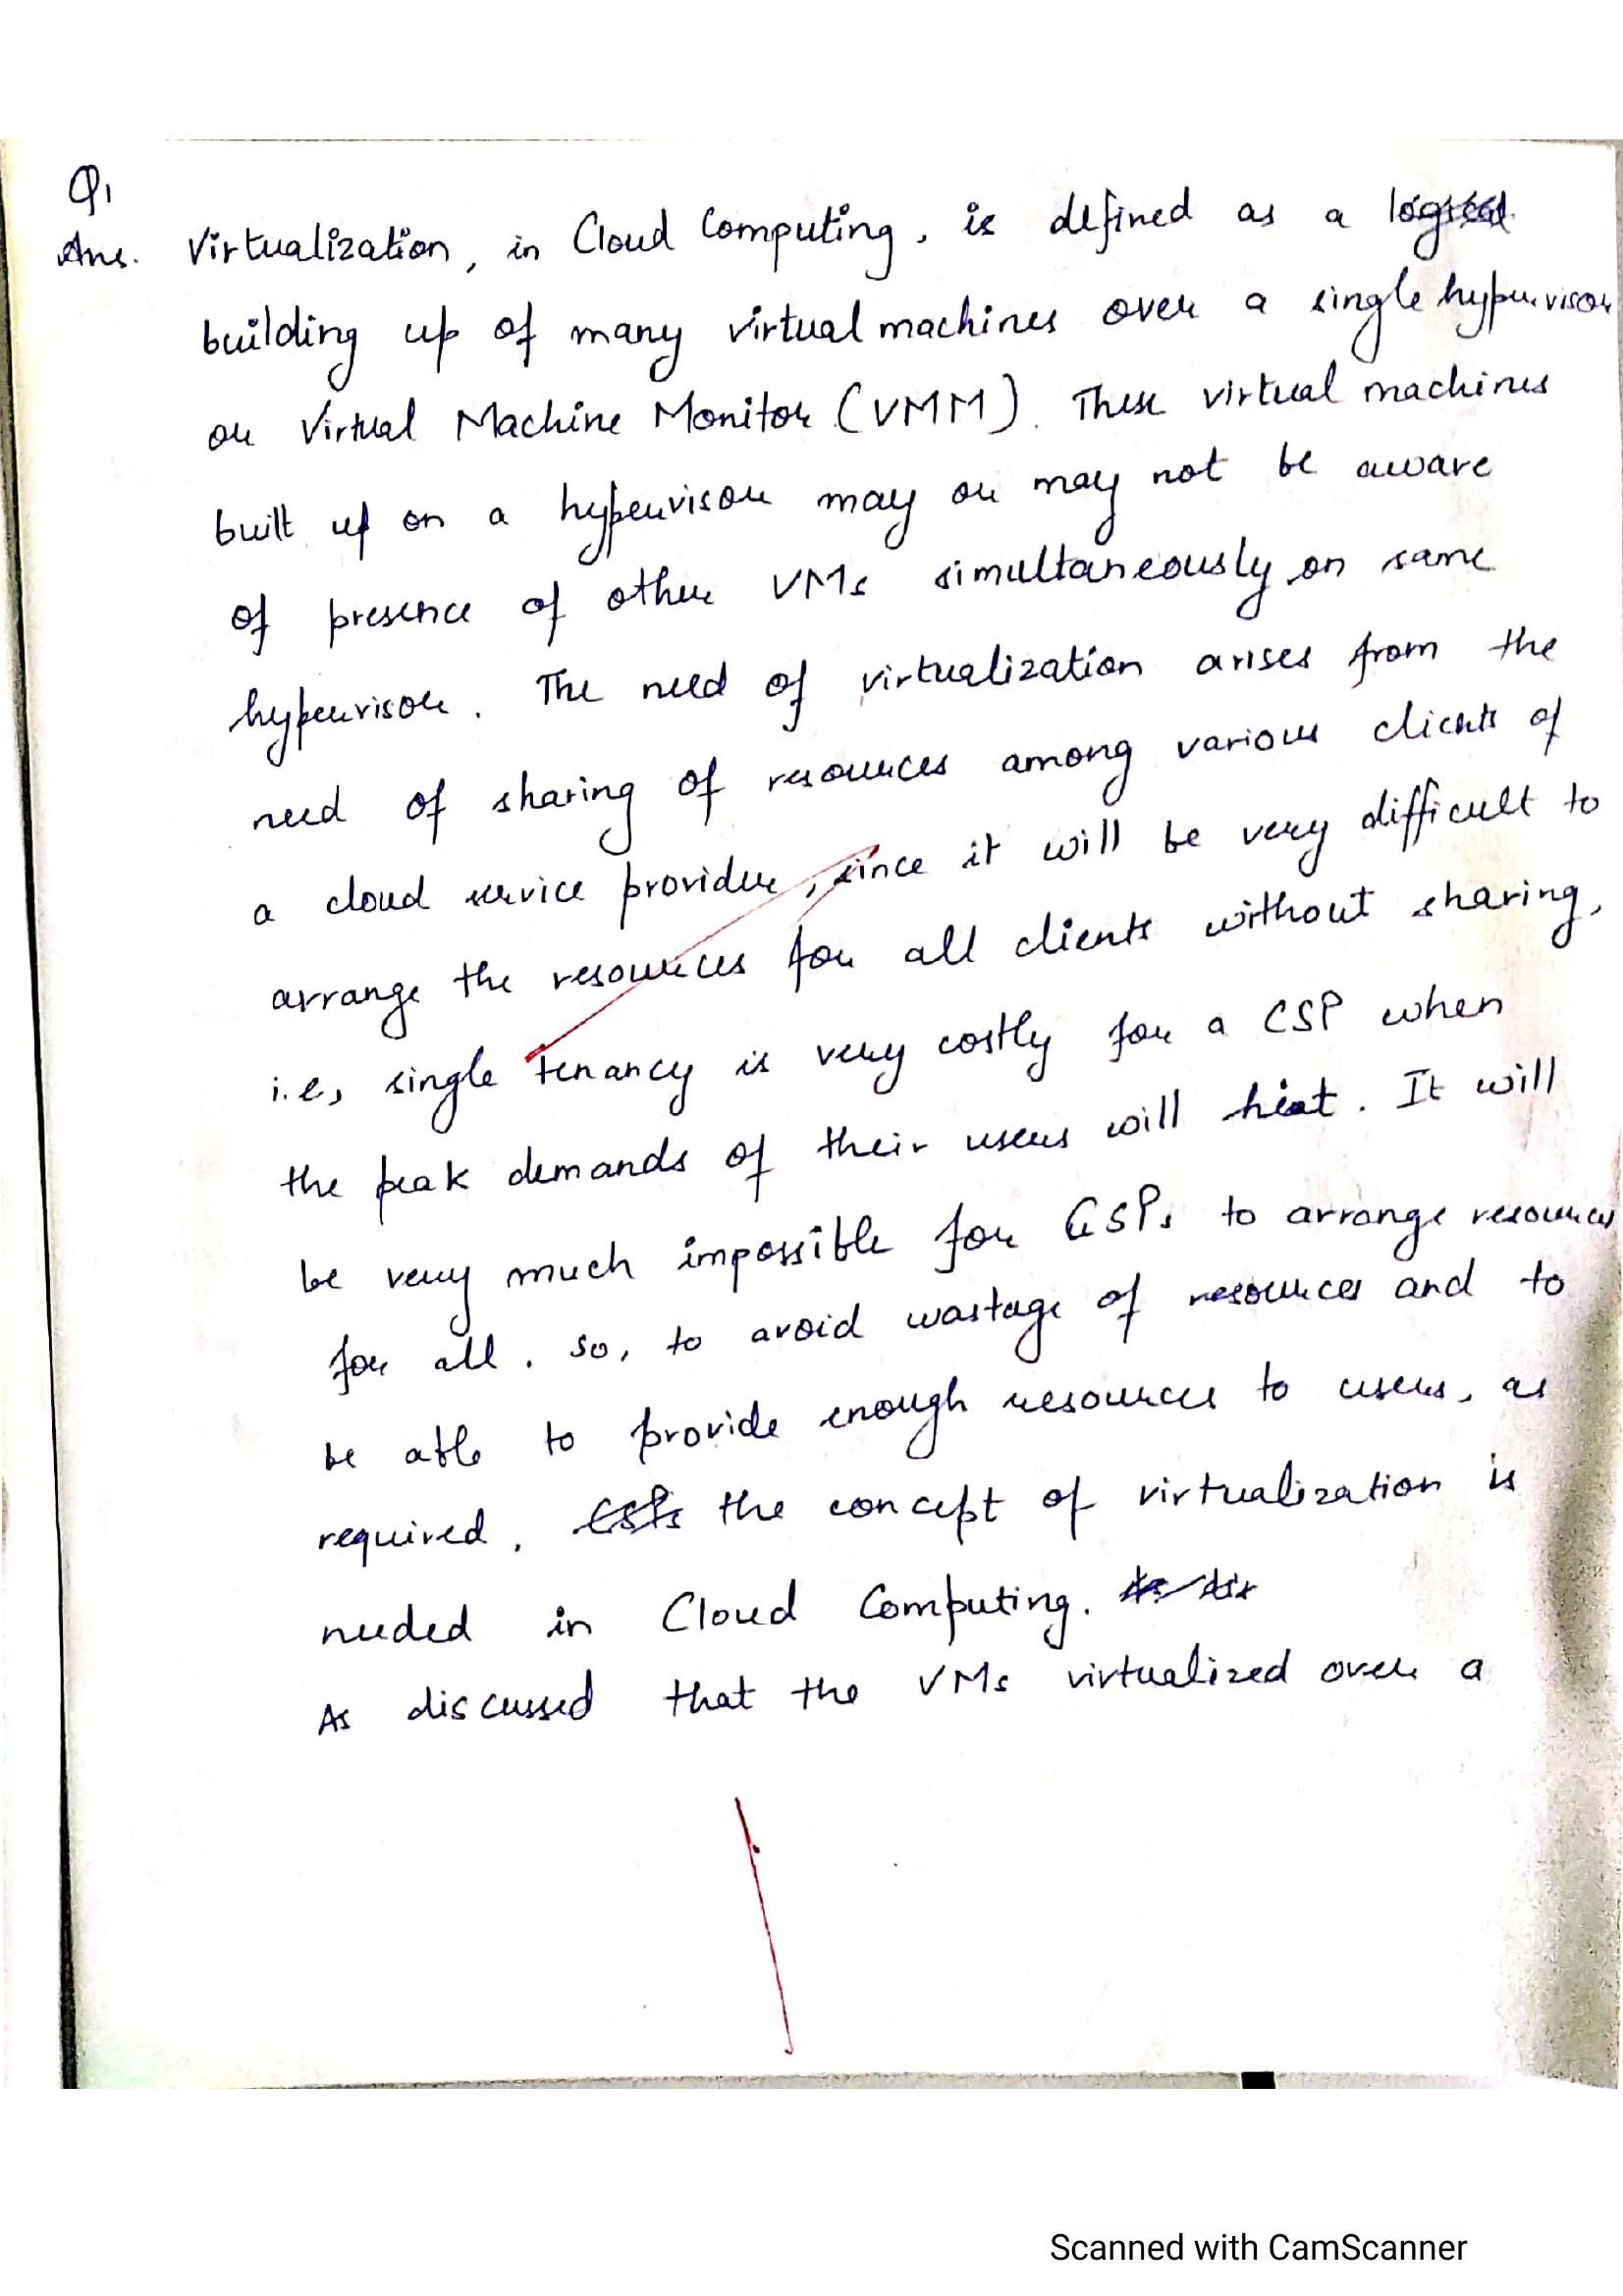 Q1
Ans. Virtualization, in Cloud Computing, is defined as a logical
building up of many virtual machines over a single hypervisor
or Virtual Machine Monitor (VMM). These virtual machines
built up on a hypervisor may or may not be aware
of presence of other VMs simultaneously on same
hypervisor. The need of virtualization arises from the
need of sharing of resources among various clients of
a cloud service provider, since it will be very difficult to
arrange the resources for all clients without sharing,
i.e, single tenancy is very costly for a CSP when
the peak demands of their users will hit. It will
be very much impossible for CSPs to arrange resources
for all. So, to avoid wastage of resources and to
be able to provide enough resources to users, as
required, CSPs the concept of virtualization is
needed in Cloud Computing.
As discussed that the VMs virtualized over a
Scanned with CamScanner